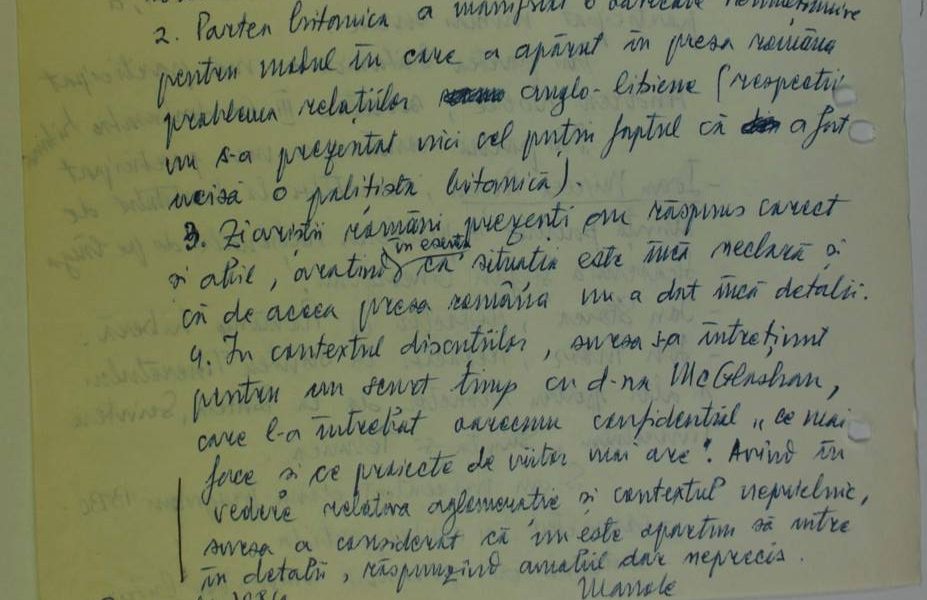 2. Partea britanica a manifestat o oarecare nemulțumire
pentru modul în care a apărut în presa română
problema relațiilor anglo-libiene (respectiv
nu s-a prezentat nici cel puțin faptul că a fost
ucisă o polițistă britanică).
3. Ziariștii români prezenți au răspuns corect
și abil, arătînd în esență că situația este încă neclară și
că de aceea presa română nu a dat încă detalii.
4. În contextul discuțiilor, sursa s-a întreținut
pentru un scurt timp cu d-na McGlashan,
care l-a întrebat oarecum confidențial „ce mai
face și ce proiecte de viitor mai are". Avînd în
vedere relativa aglomerație și contextul neprielnic,
sursa a considerat că nu este oportun să intre
în detalii, răspunzînd amabil dar neprecis.
Manole